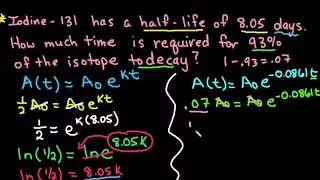 * Iodine-131 has a half-life of 8.05 days.
How much time is required for 93%
of the isotope to decay? 1-.93=.07
A(t) = A₀ e^{kt}
½ A₀ = A₀ e^{kt}
½ = e^{k(8.05)}
ln(½) = ln e^{8.05k}
ln(½) = 8.05k
A(t) = A₀ e^{-0.0861t}
.07 A₀ = A₀ e^{-0.0861t}